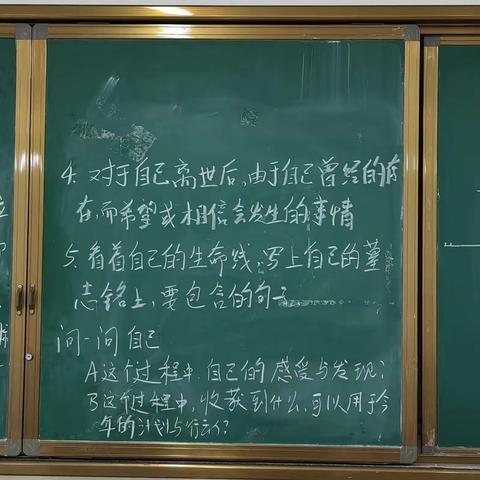 4. 对于自己离世后,由于自己曾经的存
在,而希望或相信会发生的事情
5. 看着自己的生命线,写上自己的墓
志铭上,要包含的句子
问一问自己
A这个过程中,自己的感受与发现;
B这个过程中,收获到什么,可以用于今
年的计划与行动?